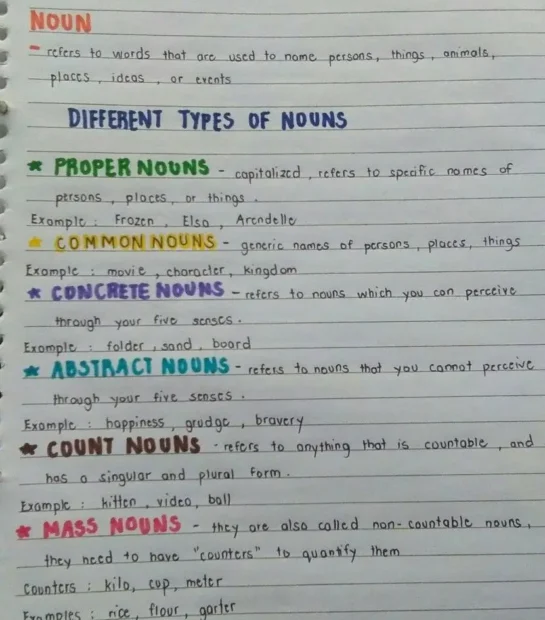 NOUN
- refers to words that are used to name persons, things, animals,
places, ideas, or events
DIFFERENT TYPES OF NOUNS
★ PROPER NOUNS - capitalized, refers to specific names of
persons, places, or things.
Example : Frozen, Elsa, Arendelle
★ COMMON NOUNS - generic names of persons, places, things
Example : movie, character, kingdom
★ CONCRETE NOUNS - refers to nouns which you can perceive
through your five senses.
Example : folder, sand, board
★ ABSTRACT NOUNS - refers to nouns that you cannot perceive
through your five senses.
Example : happiness, grudge, bravery
★ COUNT NOUNS - refers to anything that is countable, and
has a singular and plural form.
Example : kitten, video, ball
★ MASS NOUNS - they are also called non-countable nouns,
they need to have "counters" to quantify them
Counters : kilo, cup, meter
Examples : rice, flour, garter